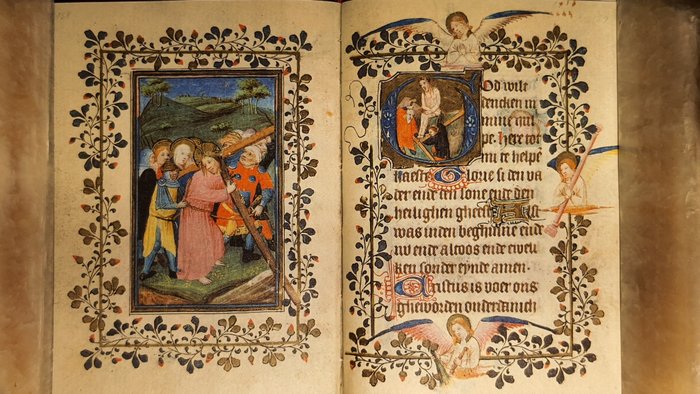 God wilt
dencken in
mine hul
pe. here tot
mi te helpe
haeste Glorie si den va
der ende den sone ende den
heilighen gheest Als
was inden beghinne ende
nu ende altoos ende ewe
ken sonder eynde amen.
Christus is voer ons
gheworden onderdanich